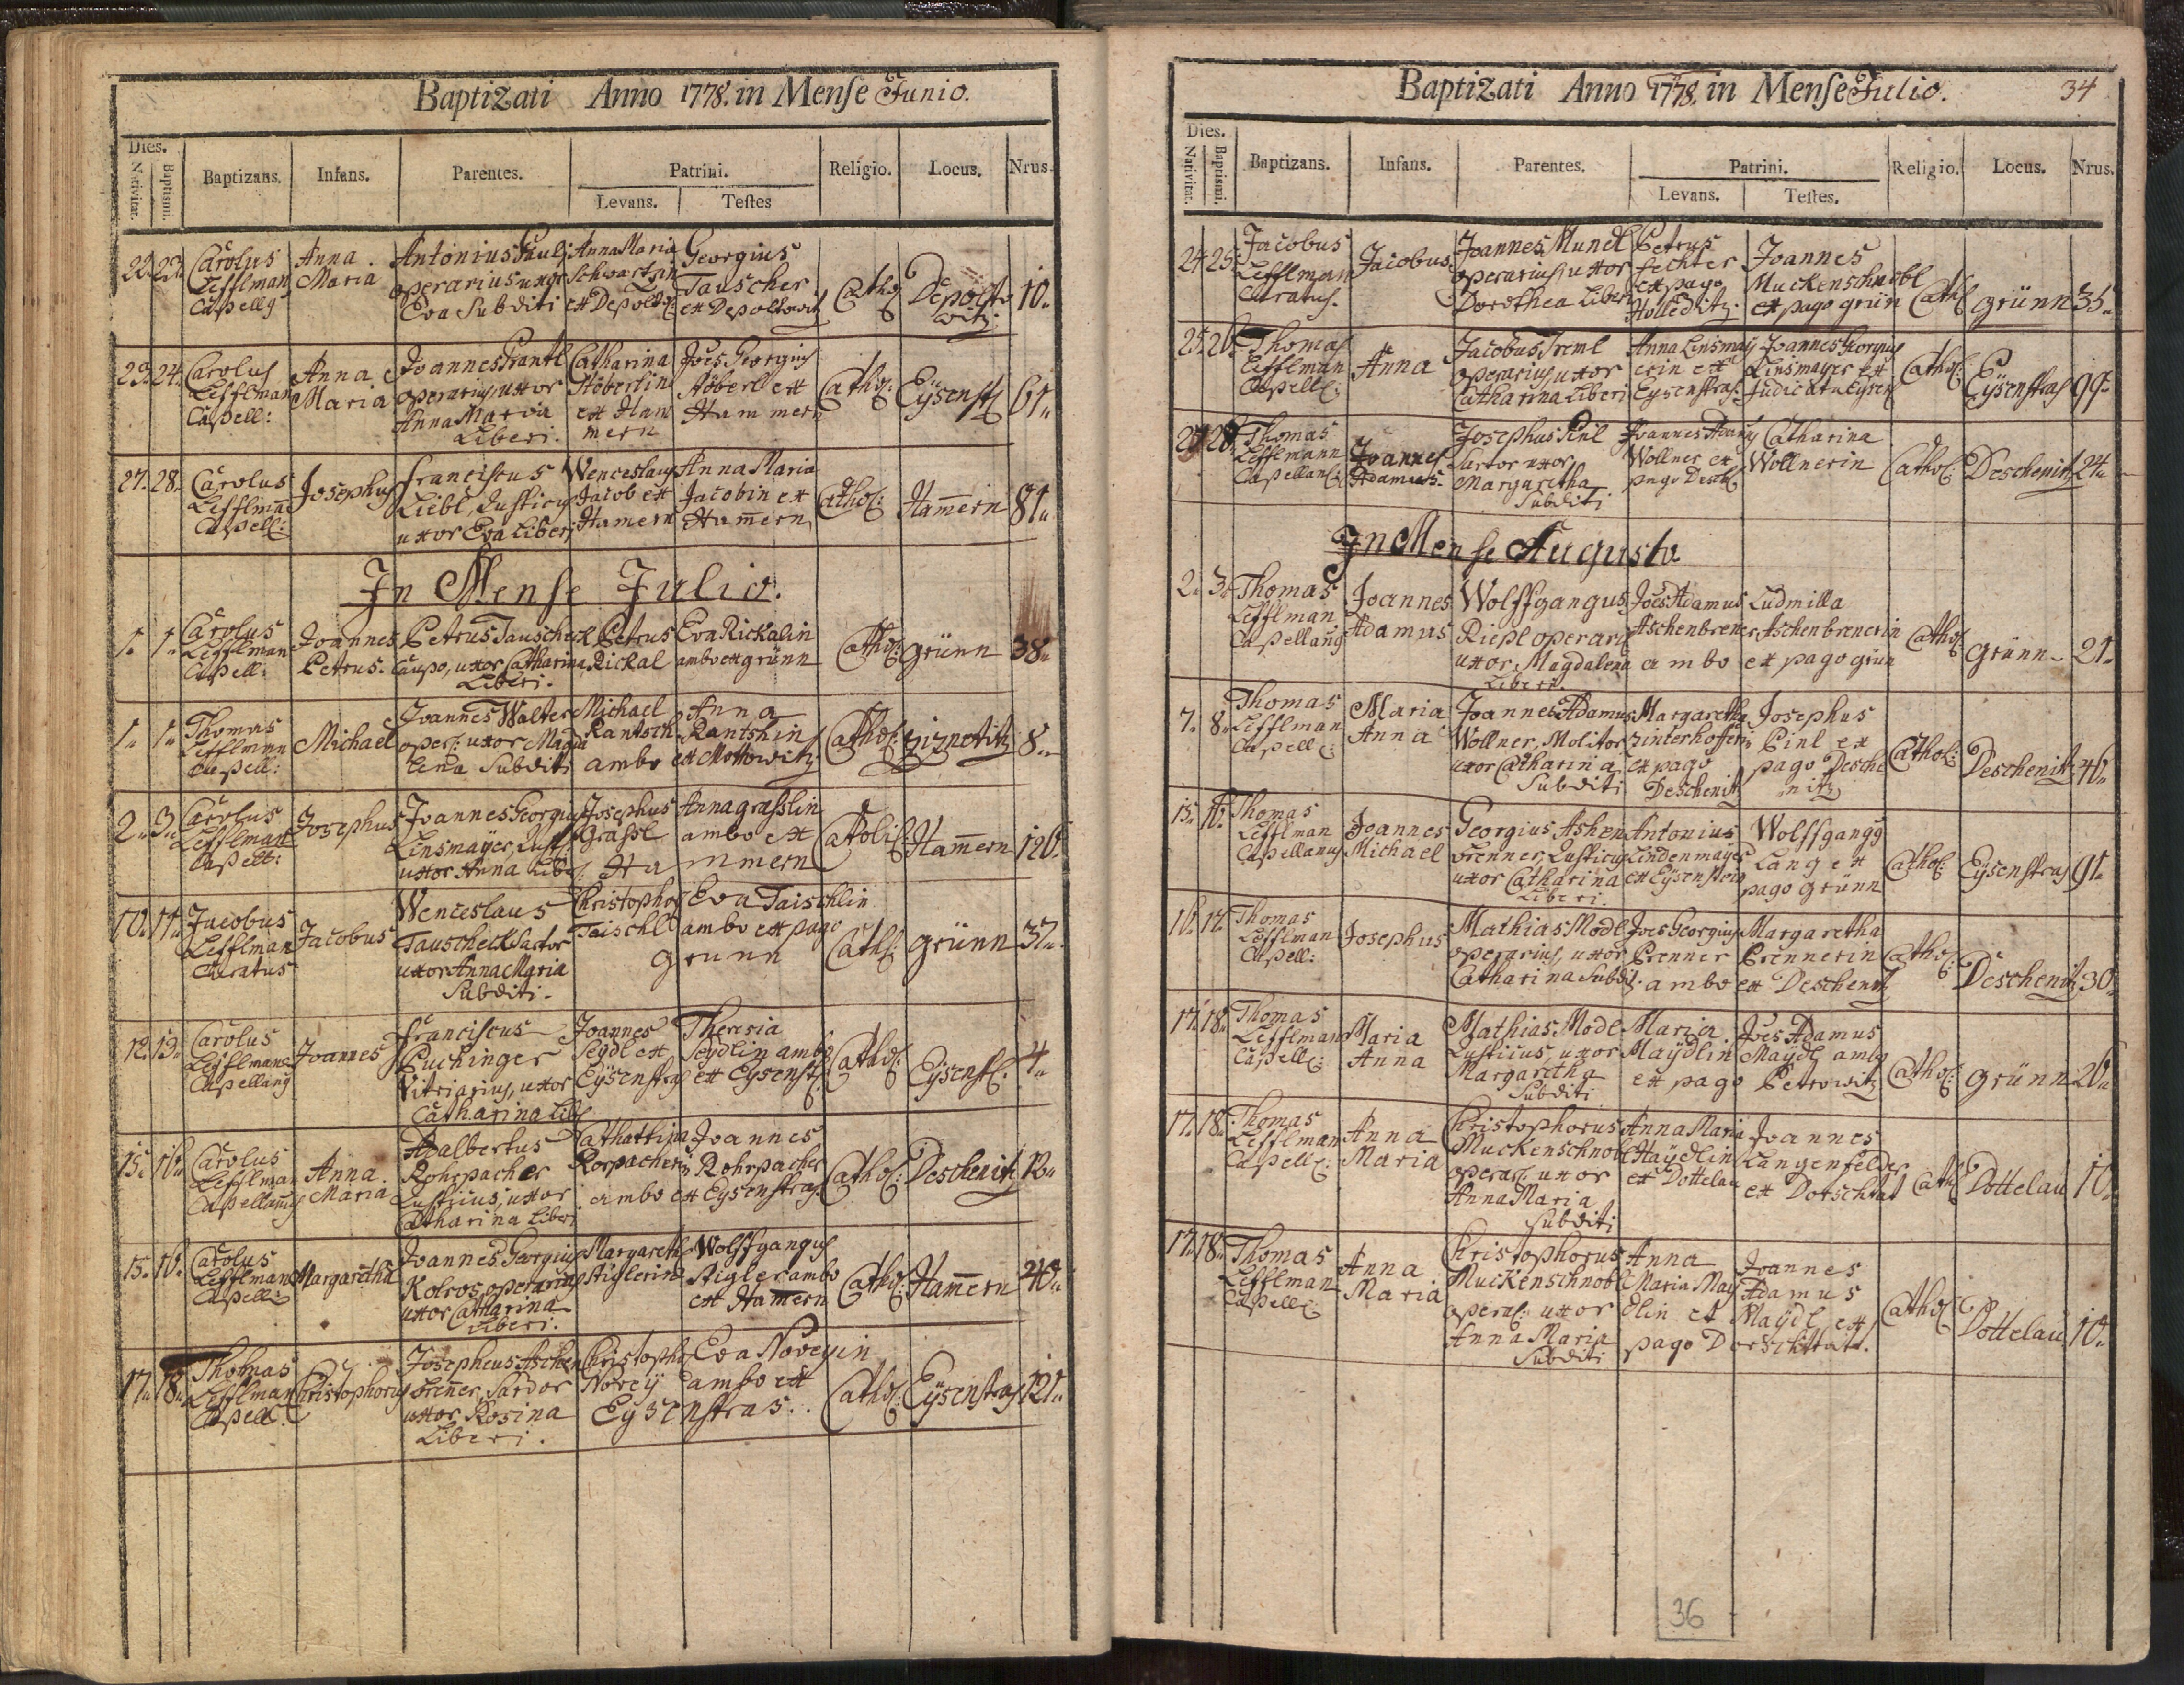 Baptizati Anno 1778. in Mense Junio.
Dies. Nativitat. Baptismi. Baptizans. Infans. Parentes. Patrini. Levans. Testes Religio. Locus. Nrus.
22. 23. Carolus Lefflman Capellg Anna Maria Antonius Pauli operarius uxor Eva Subditi Anna Maria Schwartzin ex Depoldo: Georgius Tauscher ex Depoltowitz Cathol Depolto witz 10.
23. 24. Carolus Lefflman Capell: Anna Maria Joannes Prantl operarius, uxor Anna Maria Liberi. Catharina Stöberlin ex Ham mern Joes Georgius Stöberl ex Ham mern Cathol: Eÿsenst: 61.
27. 28. Carolus Lefflman Capell: Josephus Franciscus Liebl, Rusticus uxor Eva Liberi Wenceslaus Jacob ex Hamern Anna Maria Jacobin ex Ham̄ern Cathol: Ham̄ern 81.
In Mense Julio.
1. 1. Carolus Lefflman Capell: Joannes Petrus. Petrus Tauscheck Caupo, uxor Catharina Liberi. Petrus Rickal Eva Rickalin ambo ex grünn Cathol: grünn 38.
1. 1. Thomas Lefflman Capell: Michael Joannes Walter oper: uxor Magda lena Subditi Michael Rantsch ambo Anna Rantshin ex Mottowitz Cathol: Ziznetitz 8.
2. 3. Carolus Lefflman Capell: Josephus Joannes Georgius Linsmaÿer, Rust: uxor Anna Libe: Josephus Grassl Ha Anna grasslin ambo ex mmern Catolic: Ham̄ern 120.
10. 11. Jacobus Lefflman Curatus Jacobus Wenceslaus Tauscheck Sartor uxor Anna Maria Subditi. Christophorg Taischl Eva Taischlin ambo ex pago grunn Cath: grünn 37.
12. 13. Carolus Lefflman Capellang Joannes Franciscus Puchinger Vitriarius, uxor Catharina Lib: Joannes Seÿdl ex Eÿsenstras Theresia Seÿdlin ambo ex Eysenst: Cathol: Eÿsenst: 4.
15. 16. Carolus Lefflman Capellang Anna Maria Adalbertus Rohrpacher Rusticus, uxor Catharina Liberi Catharina Rorpacherin Joannes Rohrpacher ambo ex Eysenstras: Cathol: Deschenitz 12.
15. 16. Carolus Lefflman Capell: Margaretha Joannes Georgius Kolros operarius uxor Catharina Liberi. Margareth Stiglerin Wolffgangus Stigler ambo ex Ham̄ern Cathol: Ham̄ern 40.
17. 18. Thomas Lefflman Capell: Christophorus Josephus Aschen brener, Sardor uxor Rosina Liberi. Christopho Noreÿ Eva Noreyin ambo ex Eysenstras. Cathol: Eÿsenstras 121.
Baptizati Anno 1778. in Mense Julio. 34
Dies. Nativitat. Baptismi. Baptizans. Infans. Parentes. Patrini. Levans. Testes. Religio. Locus. Nrus.
24. 25. Jacobus Lefflman Curatus. Jacobus Joannes Mundl operarius, uxor Dorothea Liberi Petrus Fechter ex pago Holleditz: Joannes Muckenschnobl ex pago grün Cath: grünn 35.
25. 26. Thomas Lefflman Capell: Anna Jacobus Treml operarius, uxor Catharina Liberi Anna Linsmaÿ erin ex Eysenstras: Joannes Georgius Linsmayer ex Judicatu Eysen Cathol: Eÿsenstras 99.
27. 28. Thomas Lefflmann Capellan: Joannes Adamus. Josephus Pinl Sartor uxor Margaretha Subditi Joannes Adamg Wollner ex pago Desch: Catharina Wollnerin Cathol: Deschenitz 24.
In Mense Augusto
2. 3. Thomas Lefflman Capellang Joannes Adamus Wolffgangus Riepl operari uxor Magdalena Liberi. Joes Adamus Aschenbrener ambo Ludmilla Aschenbrenerin ex pago grün Cathol: grünn 21.
7. 8. Thomas Lefflman Capell: Maria Anna Joannes Adamus Wollner, Molitor uxor Catharina Subditi Margaretha Zinterhofferin ex pago Deschenitz Josephus Pinl ex pago Desche nitz Cathol: Deschenitz 46.
15. 16. Thomas Lefflman Capellanus Joannes Michael Georgius Ashen brenner, Rusticus uxor Catharina Liberi. Antonius Lindenmaÿer ex Eÿsenstras Wolffgangg Lang ex pago grünn Cathol: Eÿsenstras 91.
16. 17. Thomas Lefflman Capell: Josephus Mathias Modl operarius, uxor Catharina Subdit: Joes Georgius Prenner ambo Margaretha Prennerin ex Deschenitz Cathol: Deschenitz 30.
17. 18. Thomas Lefflman Capell: Maria Anna Mathias Modl Rusticus, uxor Margaretha Subditi Maria Maÿdlin ex pago Joes Adamus Maÿdl ambo Petrowitz Cathol: grünn 20.
17. 18. Thomas Lefflman Capell: Anna Maria Christophorus Muckenschnobl operar: uxor Anna Maria Subditi Anna Maria Haÿdlin ex Dottelau Joannes Langenfelder ex Dorschtat Cath: Dottelau 10.
17. 18. Thomas Lefflman Capell: Anna Maria Christophorus Muckenschnobl operar: uxor Anna Maria Subditi Anna Maria May dlin et pago Joannes Adamus Maÿdl ex Dorschttatt. Cathol: Dottelau 10.
36